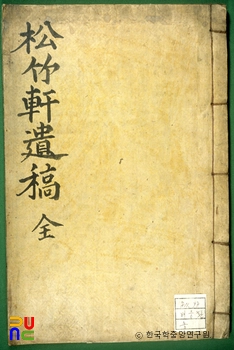 松竹軒遺稿 全
ⓒ 한국학중앙연구원